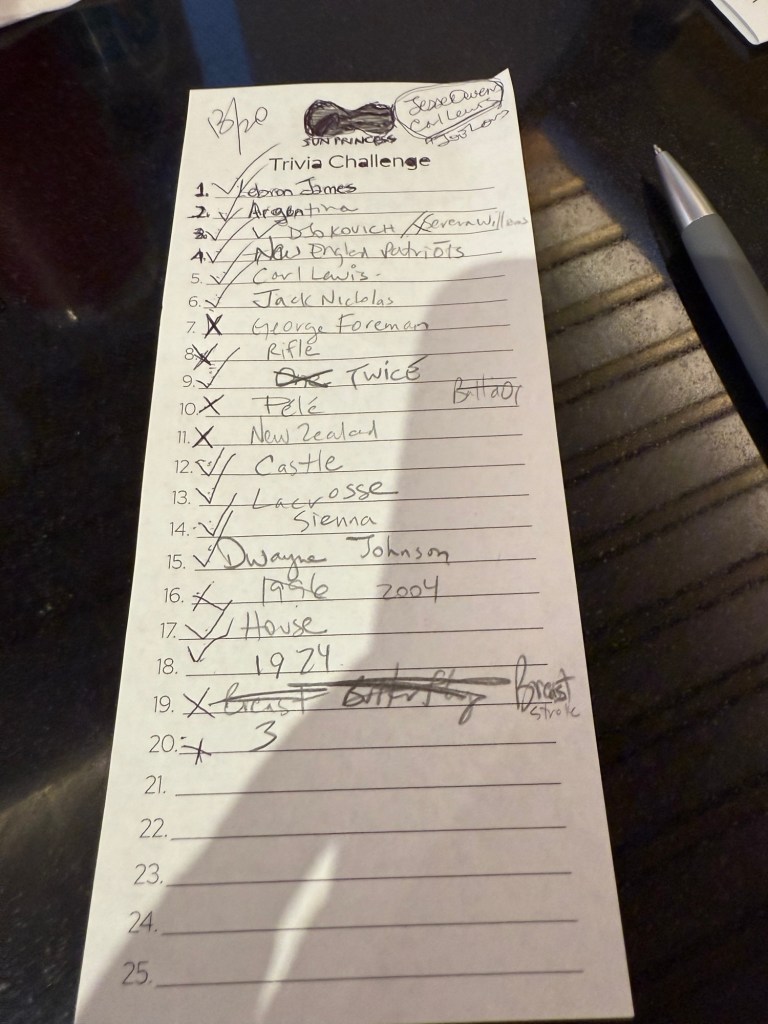 13/20
Jesse Owens
Carl Lewis
SUN PRINCESS
Trivia Challenge
1. Lebron James
2. Argentina
3. DJOKOVICH /
4. New Englan Patriots
5. Carl Lewis
6. Jack Nicklas
7. George Foreman
8. Rifle
9. One TWICE
10. Pelé
11. New Zealand
12. Castle
13. Lacrosse
14. Sienna
15. Dwayne Johnson
16. 1996 2004
17. House
18. 1924
19. Breast Butterfly Breast
stroke
20. 3
21.
22.
23.
24.
25.